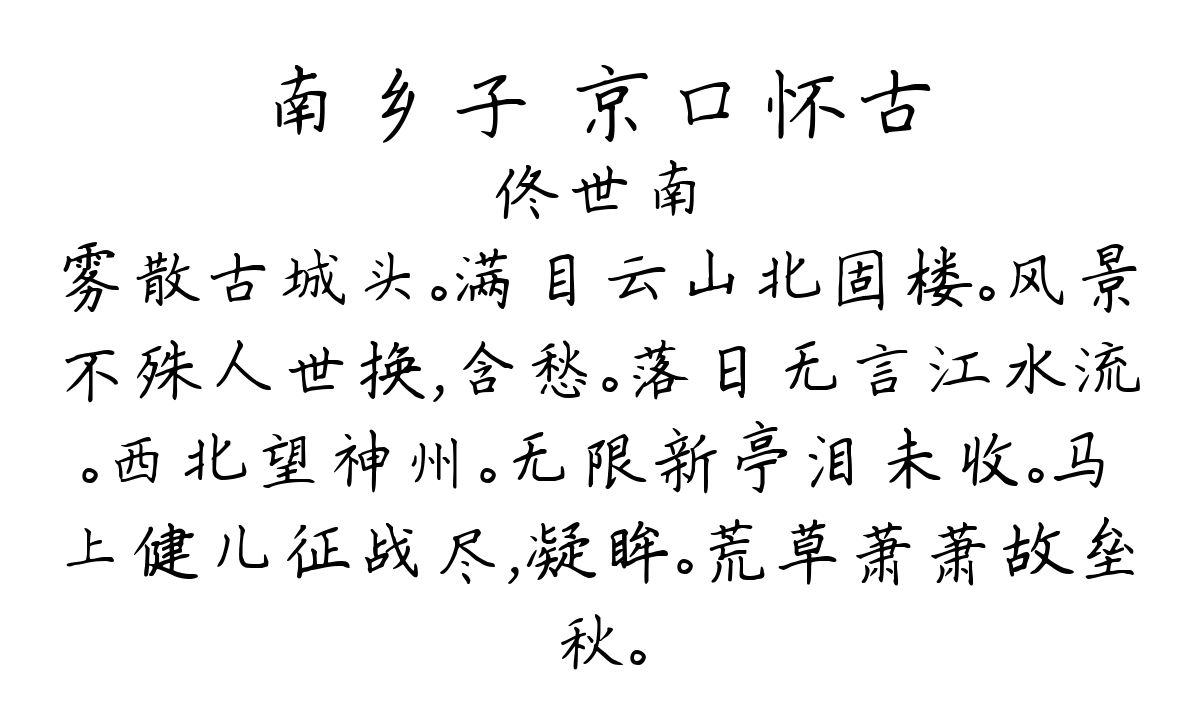 南乡子 京口怀古
佟世南
雾散古城头。满目云山北固楼。风景
不殊人世换,含愁。落日无言江水流
。西北望神州。无限新亭泪未收。马
上健儿征战尽,凝眸。荒草萧萧故垒
秋。